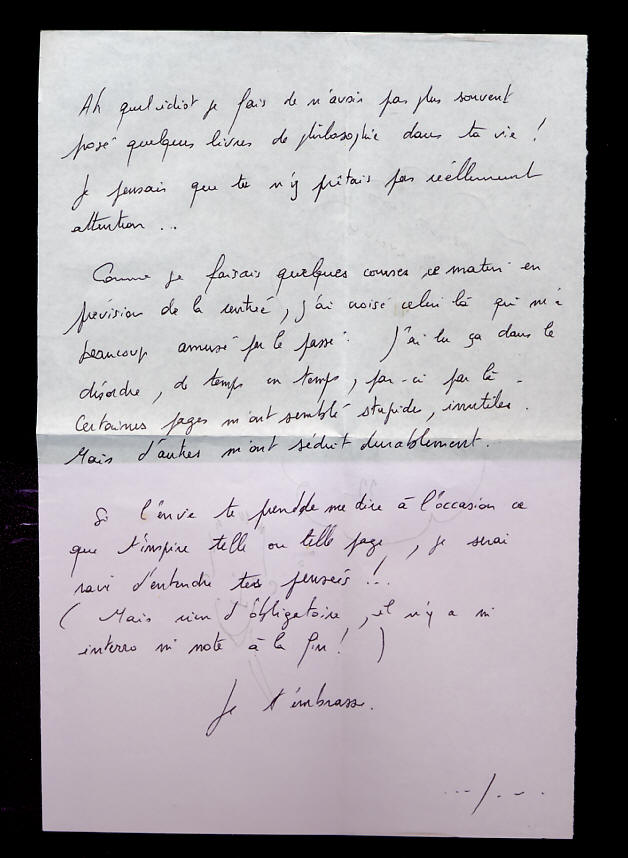 Ah quel idiot je fais de n'avoir pas plus souvent
posé quelques livres de philosophie dans ta vie !
Je pensais que tu n'y prêtais pas réellement
attention ...
Comme je faisais quelques courses ce matin en
prévision de la rentrée, j'ai croisé celui là qui m'a
beaucoup amusé par le passé. J'ai lu ça dans le
désordre, de temps en temps, par-ci par là -
Certaines pages m'ont semblé stupides, inutiles.
Mais d'autres m'ont séduit durablement.
Si l'envie te prend de me dire à l'occasion ce
que t'inspire telle ou telle page, je serai
ravi d'entendre tes pensées !!
( Mais rien d'obligatoire, il n'y a ni
interro ni note à la fin ! )
Je t'embrasse.
.../...